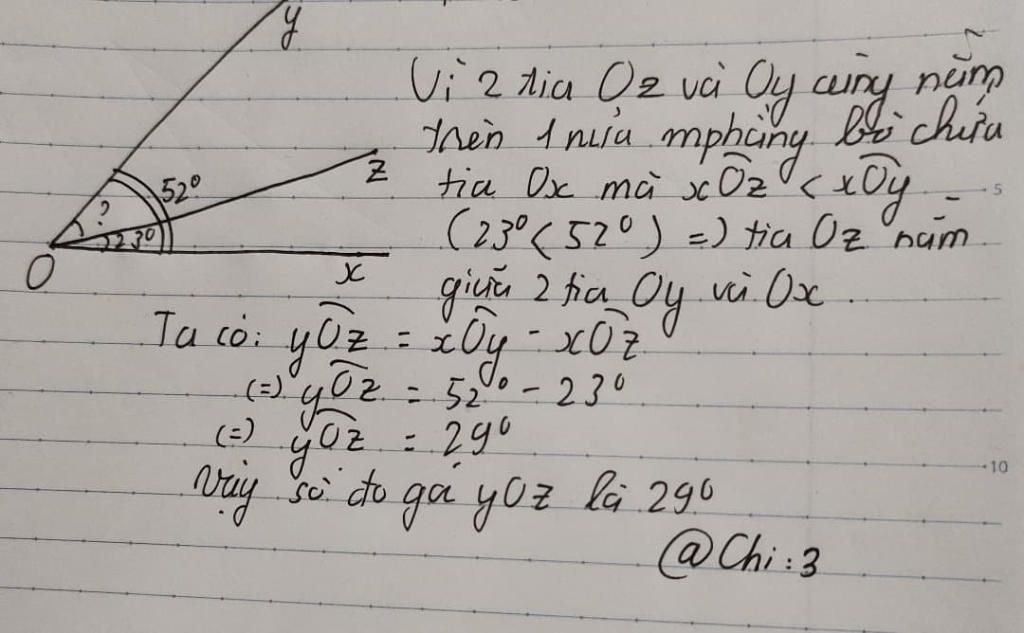 y
Vì 2 tia Oz và Oy cùng nằm
trên 1 nửa mphẳng bờ chứa
z
52°
tia Ox mà xÔz < xÔy
?
23°
(23° < 52°) =) tia Oz nằm
O
x
giữa 2 tia Oy và Ox.
Ta có: yÔz = xÔy - xÔz
(=) yÔz = 52° - 23°
(=) yÔz = 29°
Vậy số đo góc yOz là 29°
@Chi:3
5
10